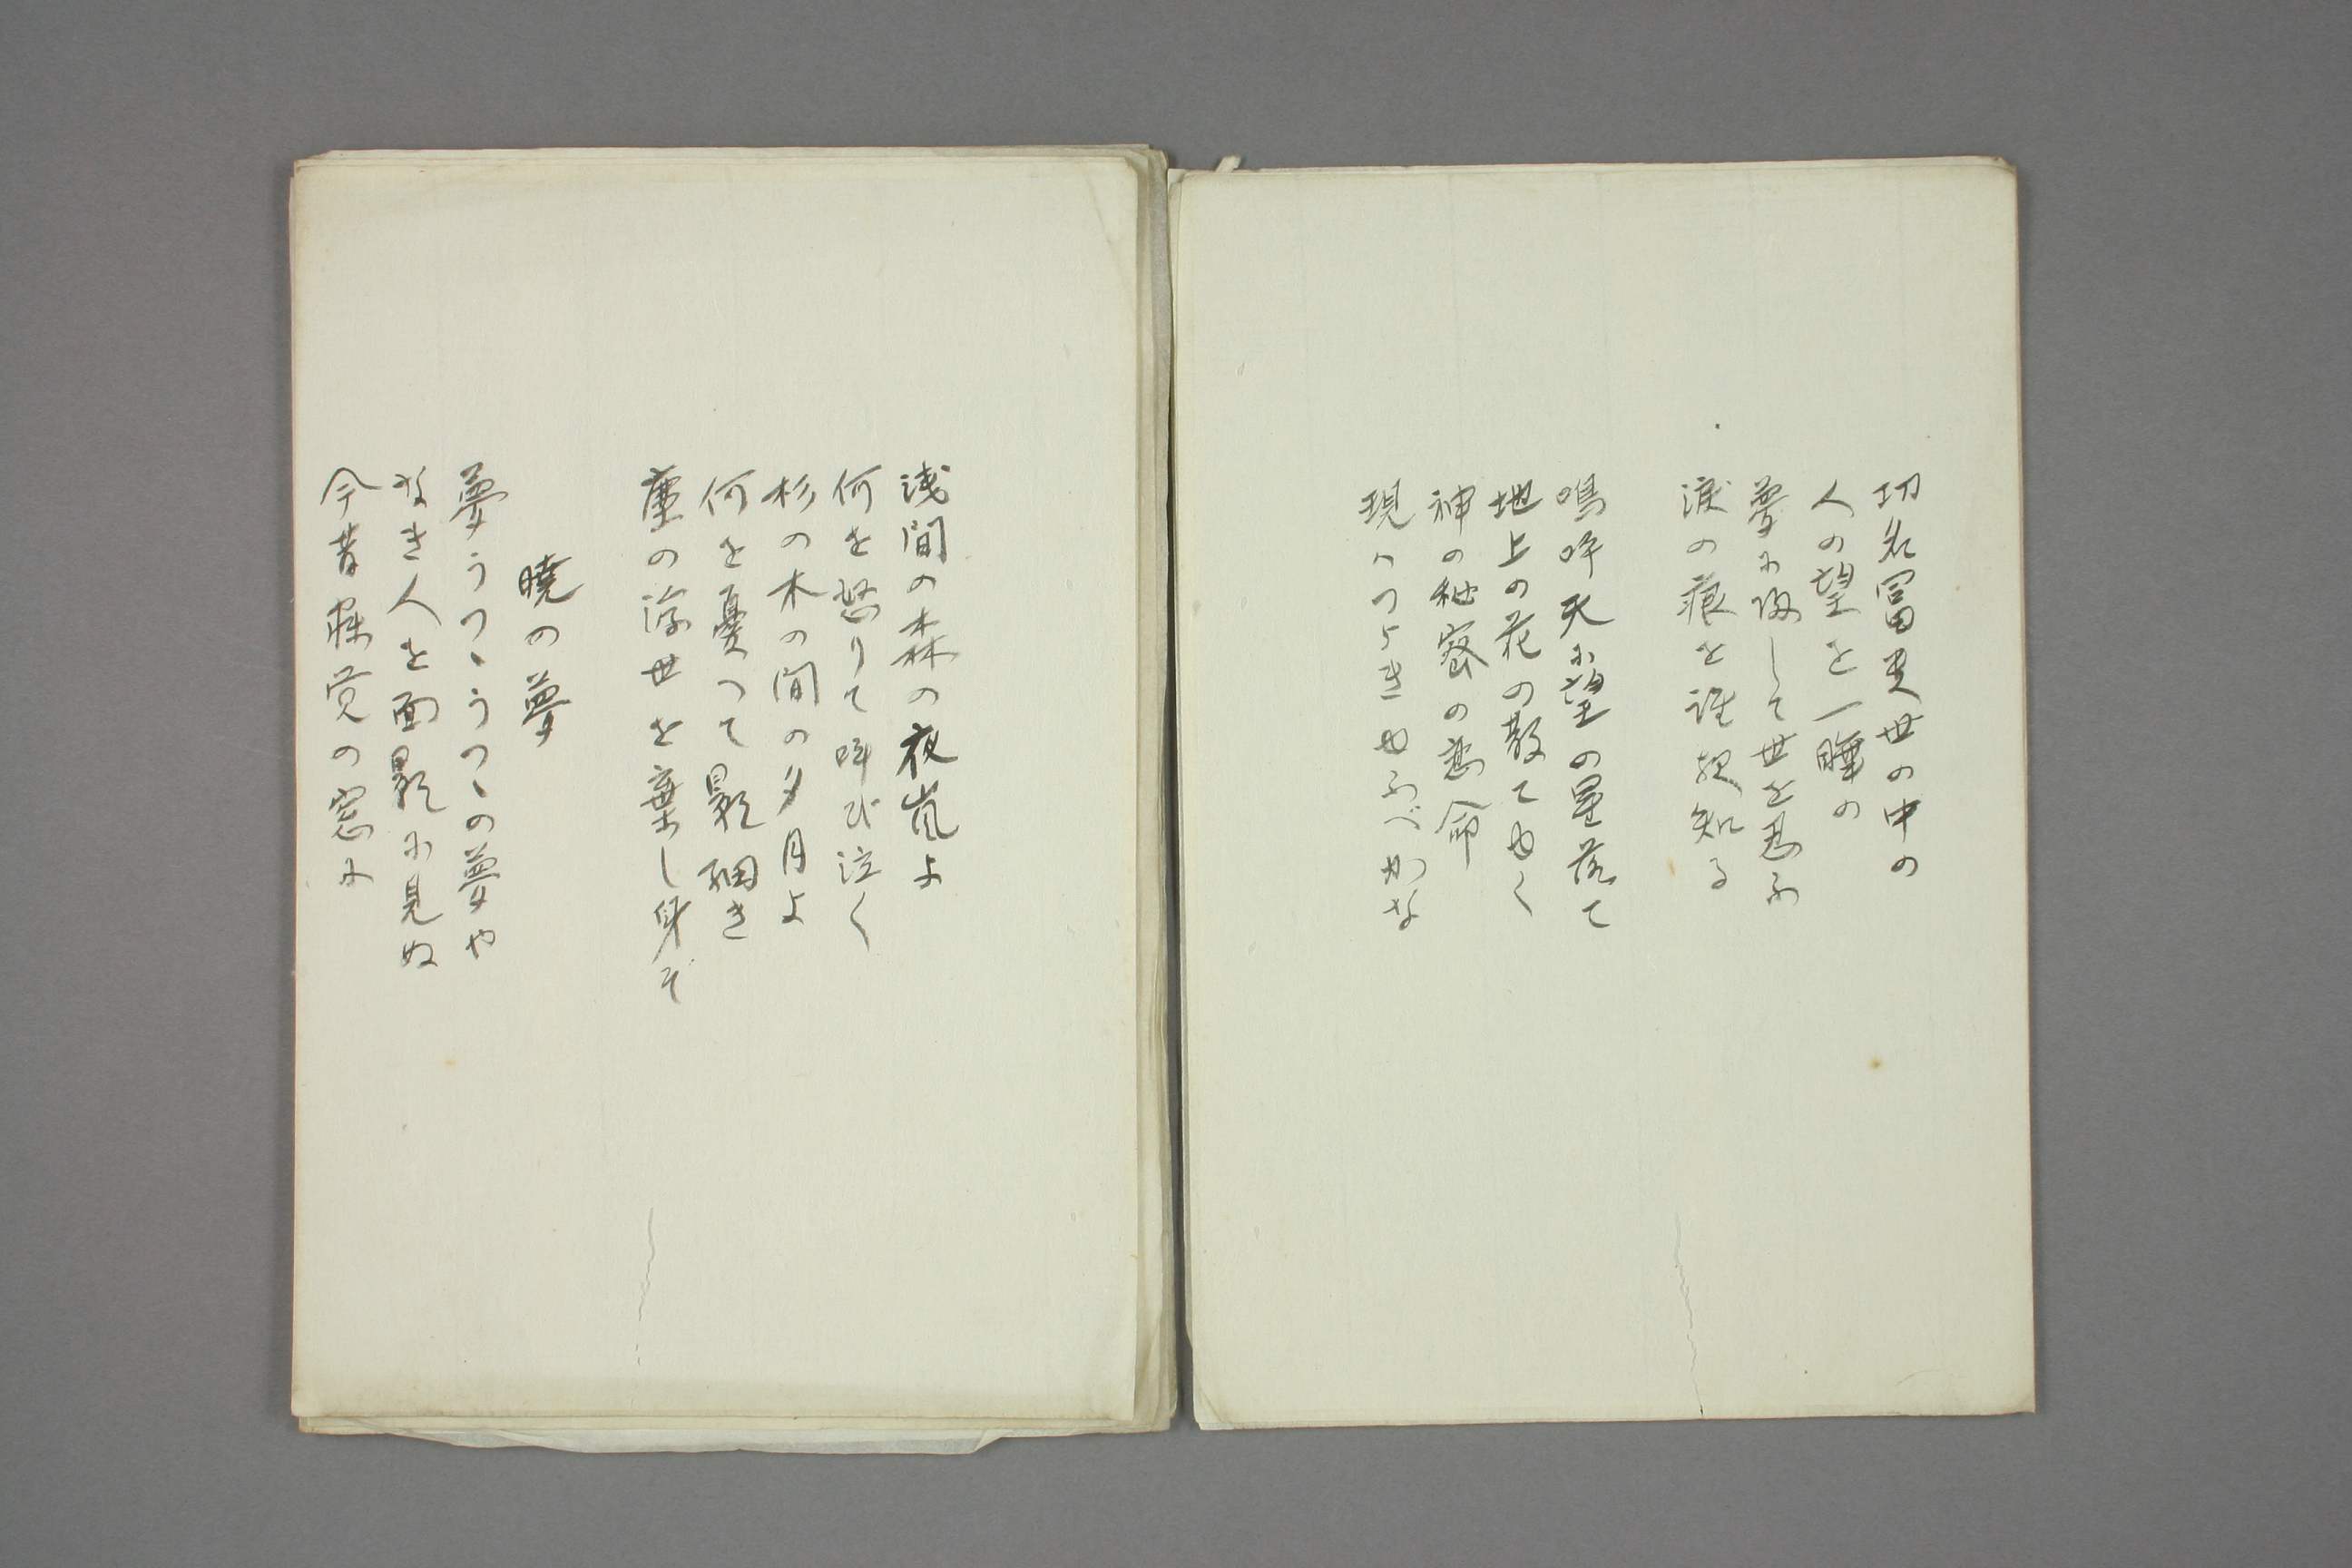 功名富貴世の中の
人の望を一睡の
夢に帰して世を忍ふ
涙の痕を誰れ知る
嗚呼天に望の星落て
地上の花の散てゆく
神の秘密の悲命
現はつよきゆふべかな
浅間の森の夜嵐よ
何を怒りて呼び泣く
杉の木の間の夕月よ
何を憂つて影細き
塵の浮世を棄し身ぞ
暁の夢
夢うつゝうつゝの夢や
なき人を面影に見ぬ
今昔寐覚の窓に